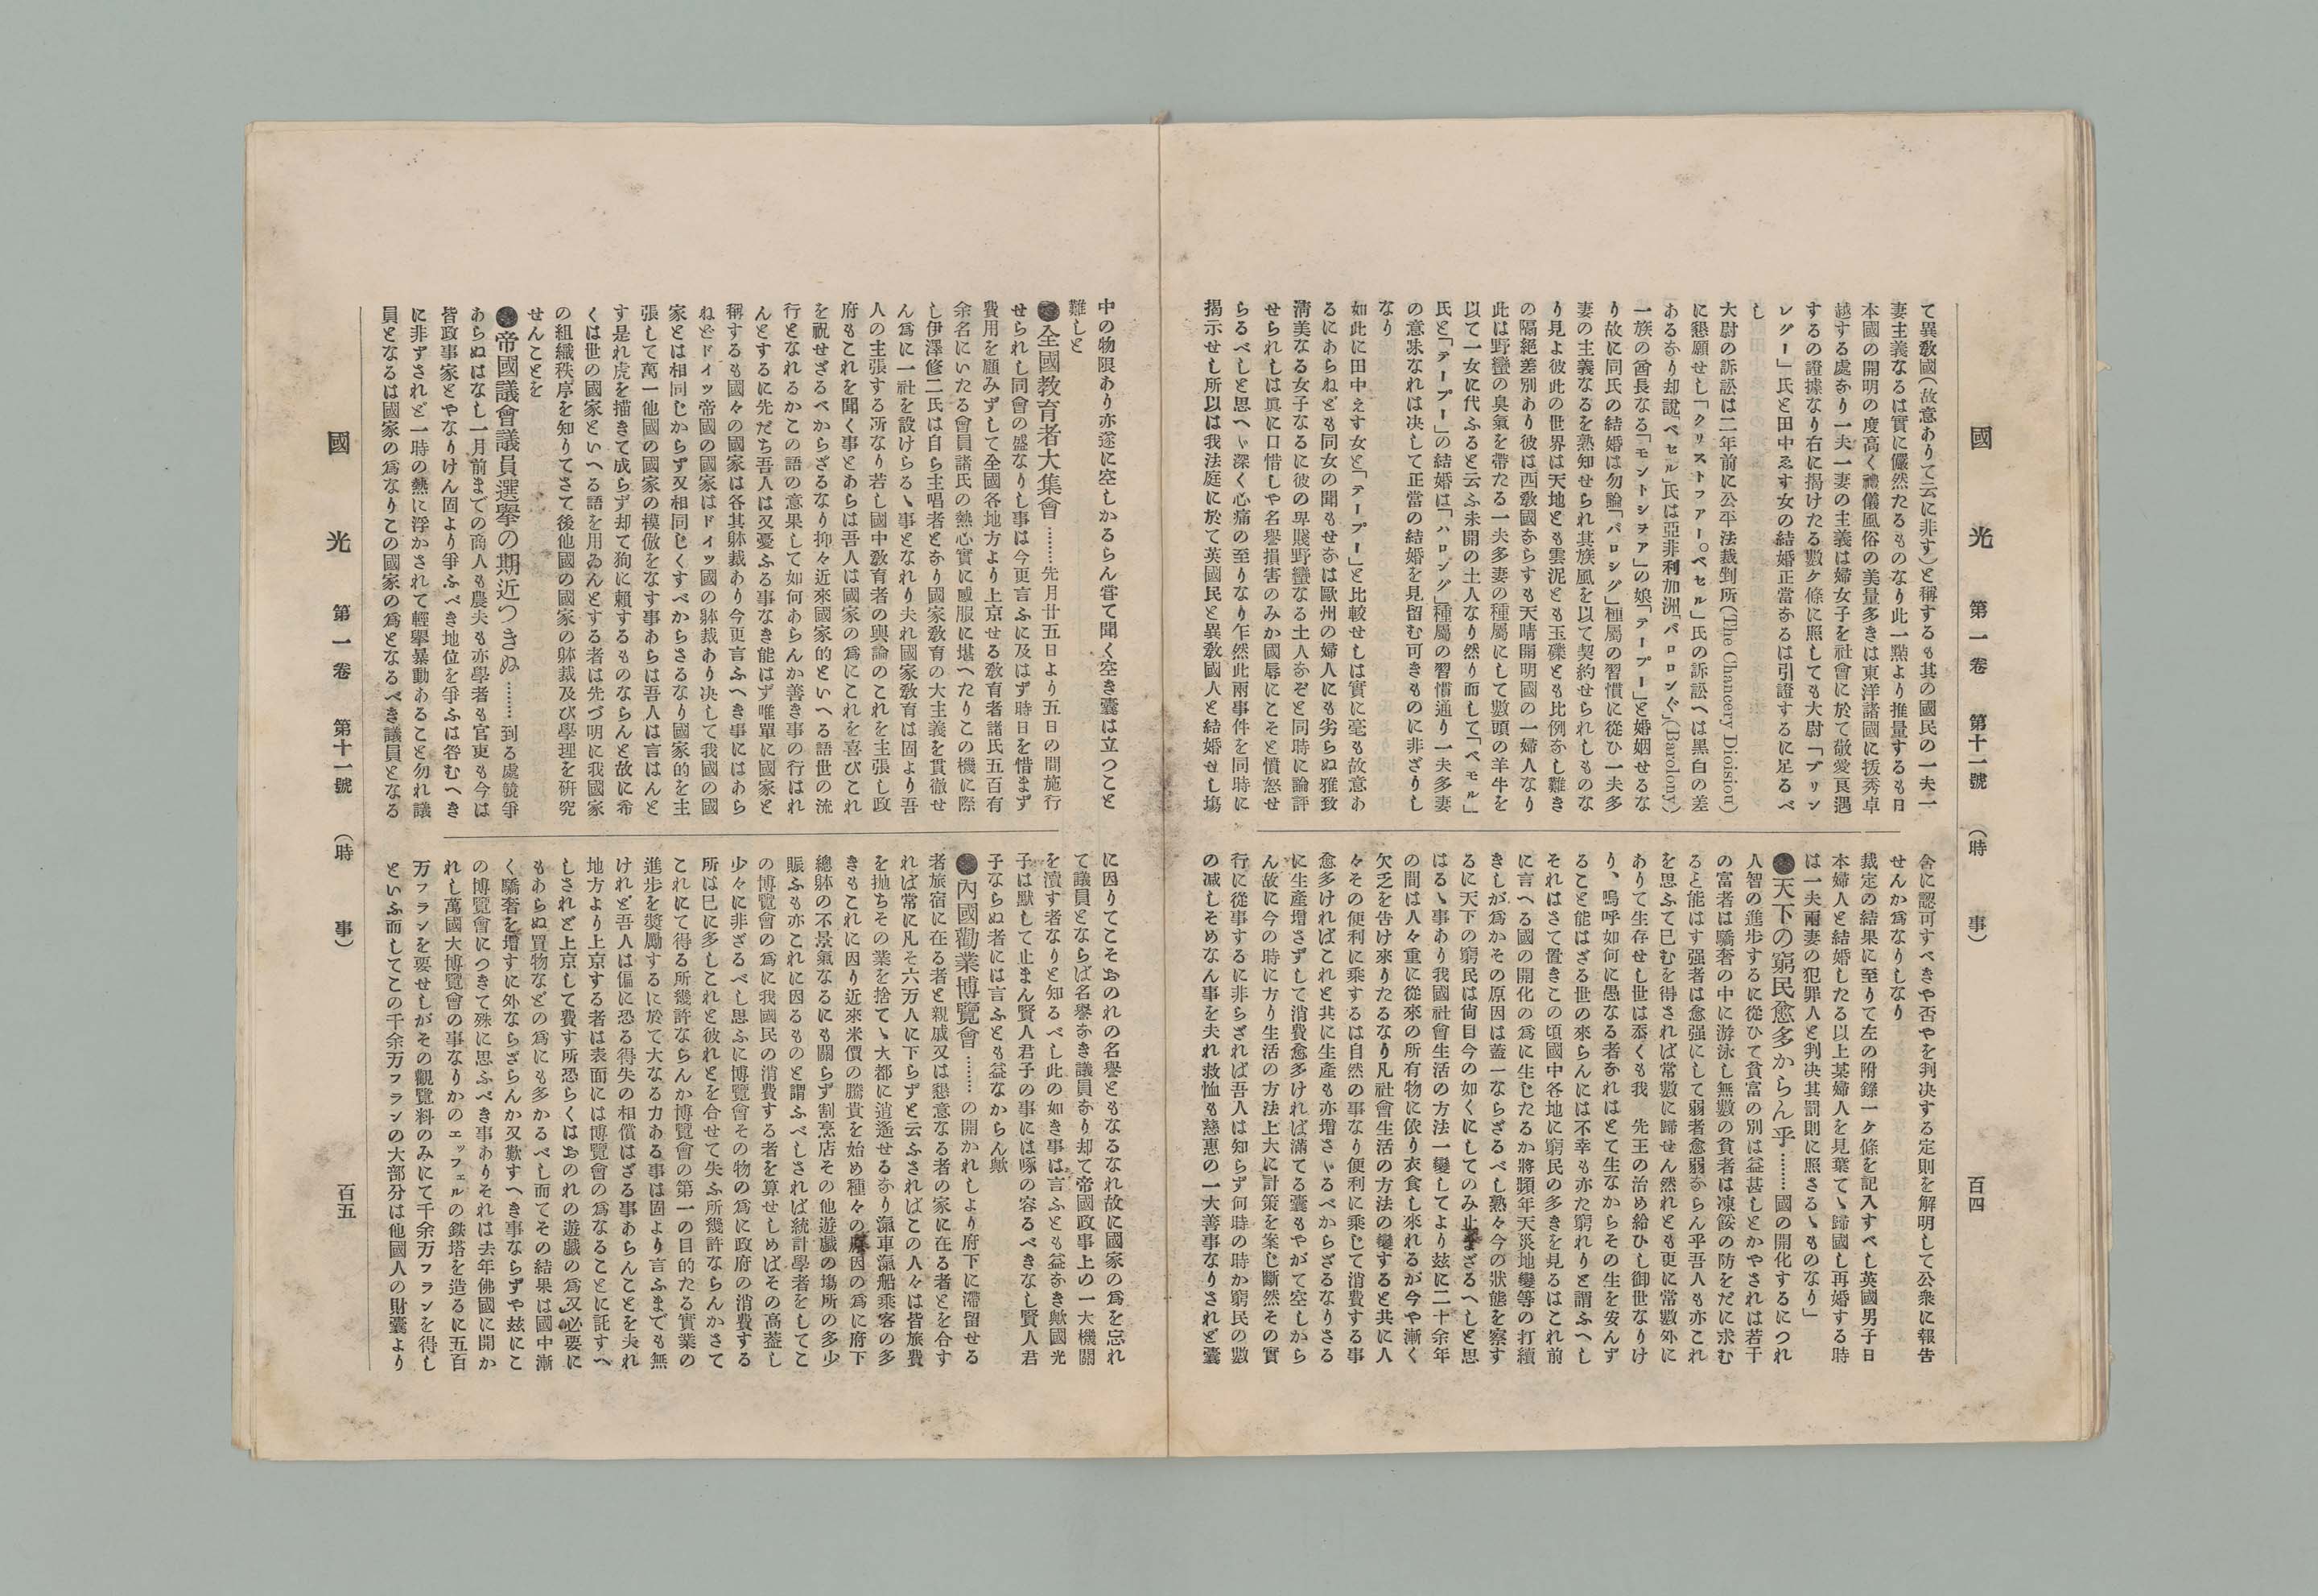 國光 第一卷 第十一號 (時事) 百四
て異教國(故意ありて云に非す)と稱するも其の國民の一夫一
妻主義なるは實に儼然たるものなり此一點より推量するも日
本國の開明の度高く禮儀風俗の美量多きは東洋諸國に拔秀卓
越する處なり一夫一妻の主義は婦女子を社會に於て敬愛良遇
するの證據なり右に揭けたる數ケ條に照しても大尉「ブリン
レグー」氏と田中ゑす女の結婚正當なるは引證するに足るべ
し
大尉の訴訟は二年前に公平法裁判所(The Chancery Dioision)
に懇願せし「クリストファー。ベセル」氏の訴訟へは黑白の差
あるなり却說「ベセル」氏は亞非利加洲「バロロンぐ」(Barolony)
一族の酋長なる「モントシヲア」の娘「テープー」と婚姻せるな
り故に同氏の結婚は勿論「バロシグ」種屬の習慣に從ひ一夫多
妻の主義なるを熟知せられ其族風を以て契約せられしものな
り見よ彼此の世界は天地とも雲泥とも玉礫とも比例なし難き
の隔絕差別あり彼は西敎國ならすも天晴開明國の一婦人なり
此は野蠻の臭氣を帶たる一夫多妻の種屬にして數頭の羊牛を
以て一女に代ふると云ふ未開の土人なり然り而して「ベモル」
氏と「テープー」の結婚は「ハロング」種屬の習慣通り一夫多妻
の意味なれは决して正當の結婚を見留む可きものに非ざりし
なり
如此に田中えす女と「テープー」と比較せしは實に毫も故意あ
るにあらねども同女の聞もせなは歐州の婦人にも劣らぬ雅致
淸美なる女子なるに彼の卑賤野蠻なる土人なぞと同時に論評
せられしは眞に口惜しや名譽損害のみか國辱にこそと憤怒せ
らるべしと思へハ深く心痛の至りなり乍然此兩事件を同時に
揭示せし所以は我法庭に於て英國民と異敎國人と結婚せし塲
舍に認可すべきや否やを判决する定則を解明して公衆に報告
せんか爲なりしなり
裁定の結果に至りて左の附錄一ケ條を記入すべし英國男子日
本婦人と結婚したる以上某婦人を見葉てゝ歸國し再婚する時
は一夫兩妻の犯罪人と判决其罰則に照さるゝものなり」
●天下の窮民愈多からん乎………國の開化するにつれ
人智の進步するに從ひて貧富の別は益甚しとかやされは若干
の富者は驕奢の中に游泳し無數の貧者は凍餒の防をだに求む
ると能はす强者は愈强にして弱者愈弱ならん乎吾人も亦これ
を思ふて已むを得されば常數に歸せん然れとも更に常數外に
ありて生存せし世は忝くも我 先王の治め給ひし御世なりけ
り、嗚呼如何に愚なる者なれはとて生なからその生を安んず
ること能はざる世の來らんには不幸も亦た窮れりと謂ふへし
それはさて置きこの頃國中各地に窮民の多きを見るはこれ前
に言へる國の開化の爲に生じたるか將頻年天災地變等の打續
きしが爲かその原因は蓋一ならざるべし熟々今の狀態を察す
るに天下の窮民は尙目今の如くにしてのみ止まざるへしと思
はるゝ事あり我國社會生活の方法一變してより玆に二十余年
の間は人々重に從來の所有物に依り衣食し來れるが今や漸く
欠乏を告け來りたるなり凡社會生活の方法の變すると共に人
々その便利に乘するは自然の事なり便利に乘じて消費する事
愈多ければこれと共に生產も亦增さゞるべからざるなりさる
に生產增さずして消費愈多ければ滿てる囊もやがて空しから
ん故に今の時に方り生活の方法上大に計策を案じ斷然その實
行に從事するに非らざれば吾人は知らず何時の時か窮民の數
の減しそめなん事を夫れ救恤も慈惠の一大善事なりされど囊
中の物限あり亦遂に空しかるらん嘗て聞く空き囊は立つこと
難しと
●全國敎育者大集會………先月廿五日より五日の間施行
せられし同會の盛なりし事は今更言ふに及はず時日を惜まず
費用を顧みずして全國各地方より上京せる敎育者諸氏五百有
余名にいたる會員諸氏の熱心實に感服に堪へたりこの機に際
し伊澤修二氏は自ら主唱者となり國家敎育の大主義を貫徹せ
ん爲に一社を設けらるゝ事となれり夫れ國家敎育は固より吾
人の主張する所なり若し國中敎育者の輿論のこれを主張し政
府もこれを聞く事とあらは吾人は國家の爲にこれを喜びこれ
を祝せざるべからざるなり抑々近來國家的といへる語世の流
行となれるかこの語の意果して如何あらんか善き事の行はれ
んとするに先だち吾人は又憂ふる事なき能はず唯單に國家と
稱するも國々の國家は各其躰裁あり今更言ふへき事にはあら
ねどドイツ帝國の國家はドイツ國の躰裁あり决して我國の國
家とは相同じからず又相同じくすべからさるなり國家的を主
張して萬一他國の國家の模倣をなす事あらは吾人は言はんと
す是れ虎を描きて成らず却て狗に類するものならんと故に希
くは世の國家といへる語を用ゐんとする者は先づ明に我國家
の組織秩序を知りてさて後他國の國家の躰裁及び學理を硏究
せんことを
●帝國議會議員選擧の期近つきぬ………到る處競爭
あらぬはなし一月前までの商人も農夫も亦學者も官吏も今は
皆政事家とやなりけん固より爭ふべき地位を爭ふは咎むへき
に非ずされど一時の熱に浮かされて輕擧暴動あること勿れ議
員となるは國家の爲なりこの國家の爲となるべき議員となる
に因りてこそおのれの名譽ともなるなれ故に國家の爲を忘れ
て議員とならば名譽なき議員なり却て帝國政事上の一大機關
を瀆す者なりと知るべし此の如き事は言ふとも益なき歟國光
子は默して止まん賢人君子の事には啄の容るべきなし賢人君
子ならぬ者には言ふとも益なからん歟
●內國勸業博覽會………の開かれしより府下に滯留せる
者旅宿に在る者と親戚又は懇意なる者の家に在る者とを合す
れば常に凡そ六万人に下らずと云ふさればこの人々は皆旅費
を抛ちその業を捨てゝ大都に逍遙せるなり滊車滊船乘客の多
きもこれに因り近來米價の騰貴を始め種々の原因の爲に府下
總躰の不景氣なるにも關らず割烹店その他遊戲の塲所の多少
賑ふも亦これに因るものと謂ふべしされば統計學者をしてこ
の博覽會の爲に我國民の消費する者を算せしめばその高蓋し
少々に非ざるべし思ふに博覽會その物の爲に政府の消費する
所は已に多しこれと彼れとを合せて失ふ所幾許ならんかさて
これにて得る所幾許ならんか博覽會の第一の目的たる實業の
進步を奬勵するに於て大なる力ある事は固より言ふまでも無
けれど吾人は偏に恐る得失の相償はざる事あらんことを夫れ
地方より上京する者は表面には博覽會の爲なることに託すへ
しされど上京して費す所恐らくはおのれの遊戲の爲又必要に
もあらぬ買物などの爲にも多かるべし而てその結果は國中漸
く驕奢を增すに外ならざらんか又歎すへき事ならずや玆にこ
の博覽會につきて殊に思ふべき事ありそれは去年佛國に開か
れし萬國大博覽會の事なりかのエッフェルの鐵塔を造るに五百
万フランを要せしがその觀覽料のみにて千余万フランを得し
といふ而してこの千余万フランの大部分は他國人の財囊より
國光 第一卷 第十一號 (時事) 百五